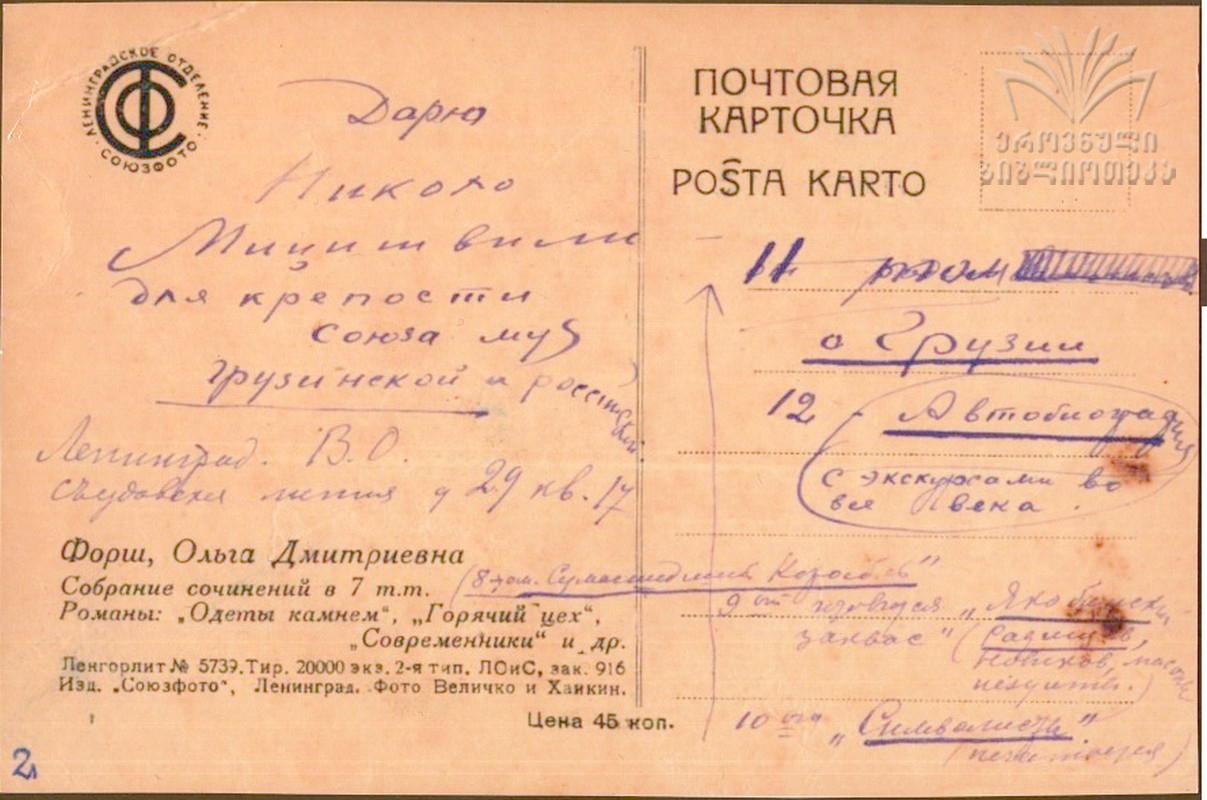 ЛЕНИНГРАДСКОЕ ОТДЕЛЕНИЕ
СОЮЗФОТО
Дарю
Николо
Мицишвили
для крепости
союза муз
грузинской и российской
Ленинград. В.О.
Съездовская линия д 29 кв. 17
Форш, Ольга Дмитриевна
Собрание сочинений в 7 т.т.
Романы: „Одеты камнем“, „Горячий цех“,
„Современники“ и др.
Ленгорлит № 5739. Тир. 20000 экз. 2-я тип. ЛОиС, зак. 916
Изд. „Союзфото“, Ленинград. Фото Величко и Хайкин.
Цена 45 коп.
2
ПОЧТОВАЯ
КАРТОЧКА
POŜTA KARTO
ეროვნული
ბიბლიოთეკა
11 том
о Грузии
12 - Автобиография
с экскурсами во
все века.
(8 том. Сумасшедший Корабль"
9 ый готовится „Якобинский
заквас" (Радищев,
Новиков, масоны
10 ый „Символисты"
(печатается)